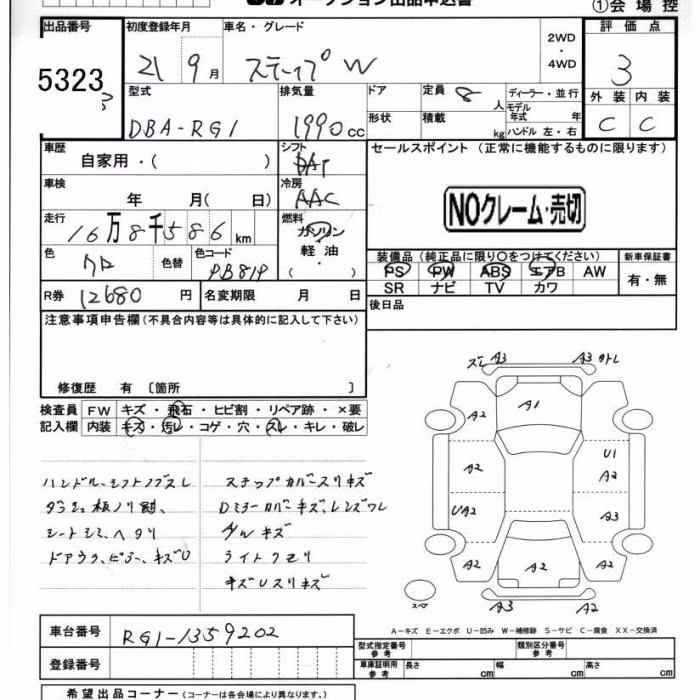 オークション出品申込書
①会場控
出品番号 初度登録年月 車名・グレード 評価点
5323
3
21 9月 ステップ W
2WD
・
4WD
3
型式 排気量 ドア 定員 8 人 ディーラー・並行 外装 内装
DBA-RG1 1990cc 形状 積載 kg モデル年式 年 C C
ハンドル 左・右
車歴 シフト セールスポイント (正常に機能するものに限ります)
自家用・( ) DAT
車検 冷房
年 月( 日) AAC
NOクレーム・売切
走行 燃料
16万8千586km ガソリン
軽油
( )
色 クロ 色替 色コード PB81P
装備品(純正品に限り○をつけてください) 新車保証書
PS PW ABS エアB AW 有・無
SR ナビ TV カワ
R券 12680円 名変期限 月 日 後日品
注意事項申告欄(不具合内容等は具体的に記入して下さい)
修復歴 有〔箇所 〕
検査員 FW キズ・飛石・ヒビ割・リペア跡・×要
記入欄 内装 キズ・汚レ・コゲ・穴・スレ・キレ・破レ
ハンドル、シフトノブスレ
ダッシュ板ノリ割、
シートシミ、ヘタリ
ドアウラ、ピラー、キズU
ステップカバースリキズ
Dミラーカバーキズ、レンズワレ
ライトクモリ
キズUスリキズ
ズレ A3 A3
A2 A1
A2 U1
A2
UA2 A3
A2 A2 A2
スペア A3 A2
A-キズ E-エクボ U-凹み W-補修跡 S-サビ C-腐食 XX-交換済
車台番号 RG1-1359202
登録番号
型式指定番号 参考 類別区分番号 参考
車庫証明用 参考 長さ cm 幅 cm 高さ cm
希望出品コーナー(コーナーは各会場により異なります。)